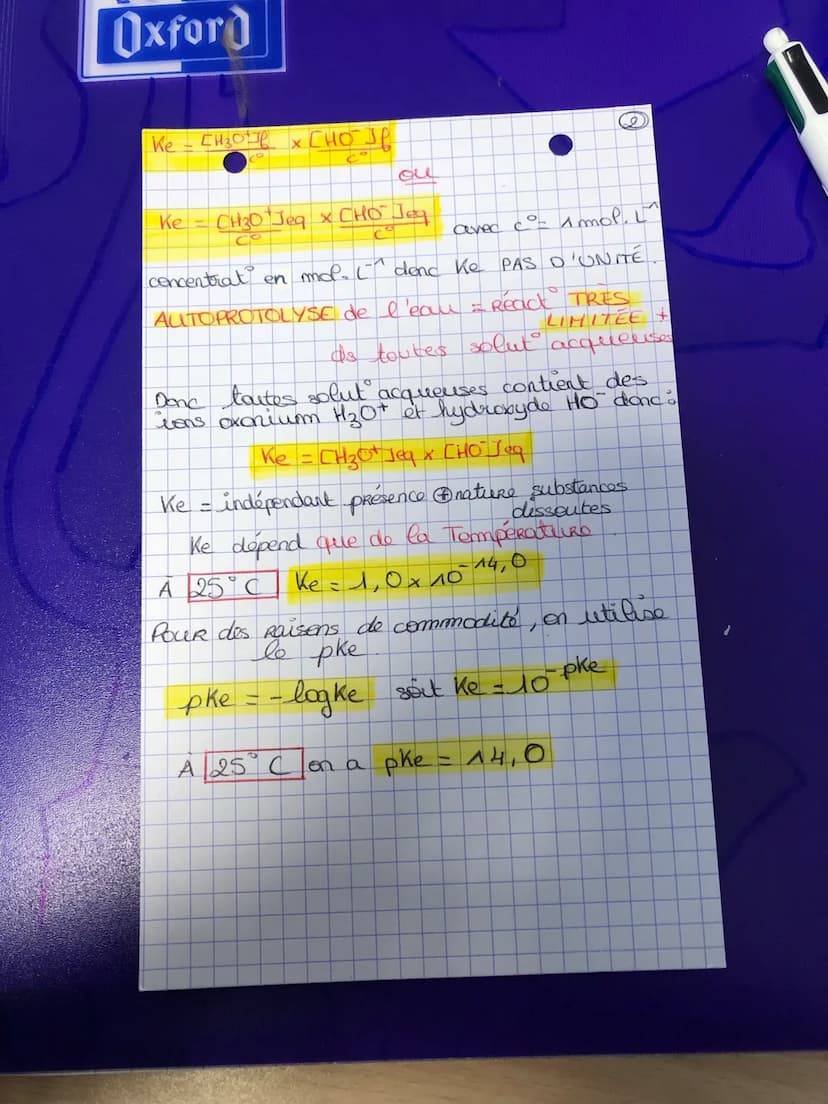 Oxford
2
Ke = [H3O+]f/c° × [HO-]f/c°
ou
Ke = [H3O+]eq/c° × [HO-]eq/c° avec c° = 1 mol.L-1
concentrat° en mol.L-1 donc Ke PAS D'UNITÉ.
AUTOPROTOLYSE de l'eau = RÉact° TRÈS
LIMITÉE +
ds toutes solut° acqueuses
Donc toutes solut° acqueuses contient des
ions oxonium H3O+ et hydroxyde HO- donc :
Ke = [H3O+]eq × [HO-]eq
Ke = indépendant présence ⊕ nature substances
dissoutes
Ke dépend que de la Température
À 25°C Ke = 1,0 × 10-14,0
POUR des raisons de commodité, on utilise
le pke
pKe = - logKe soit Ke = 10-pKe
À 25°C on a pKe = 14,0